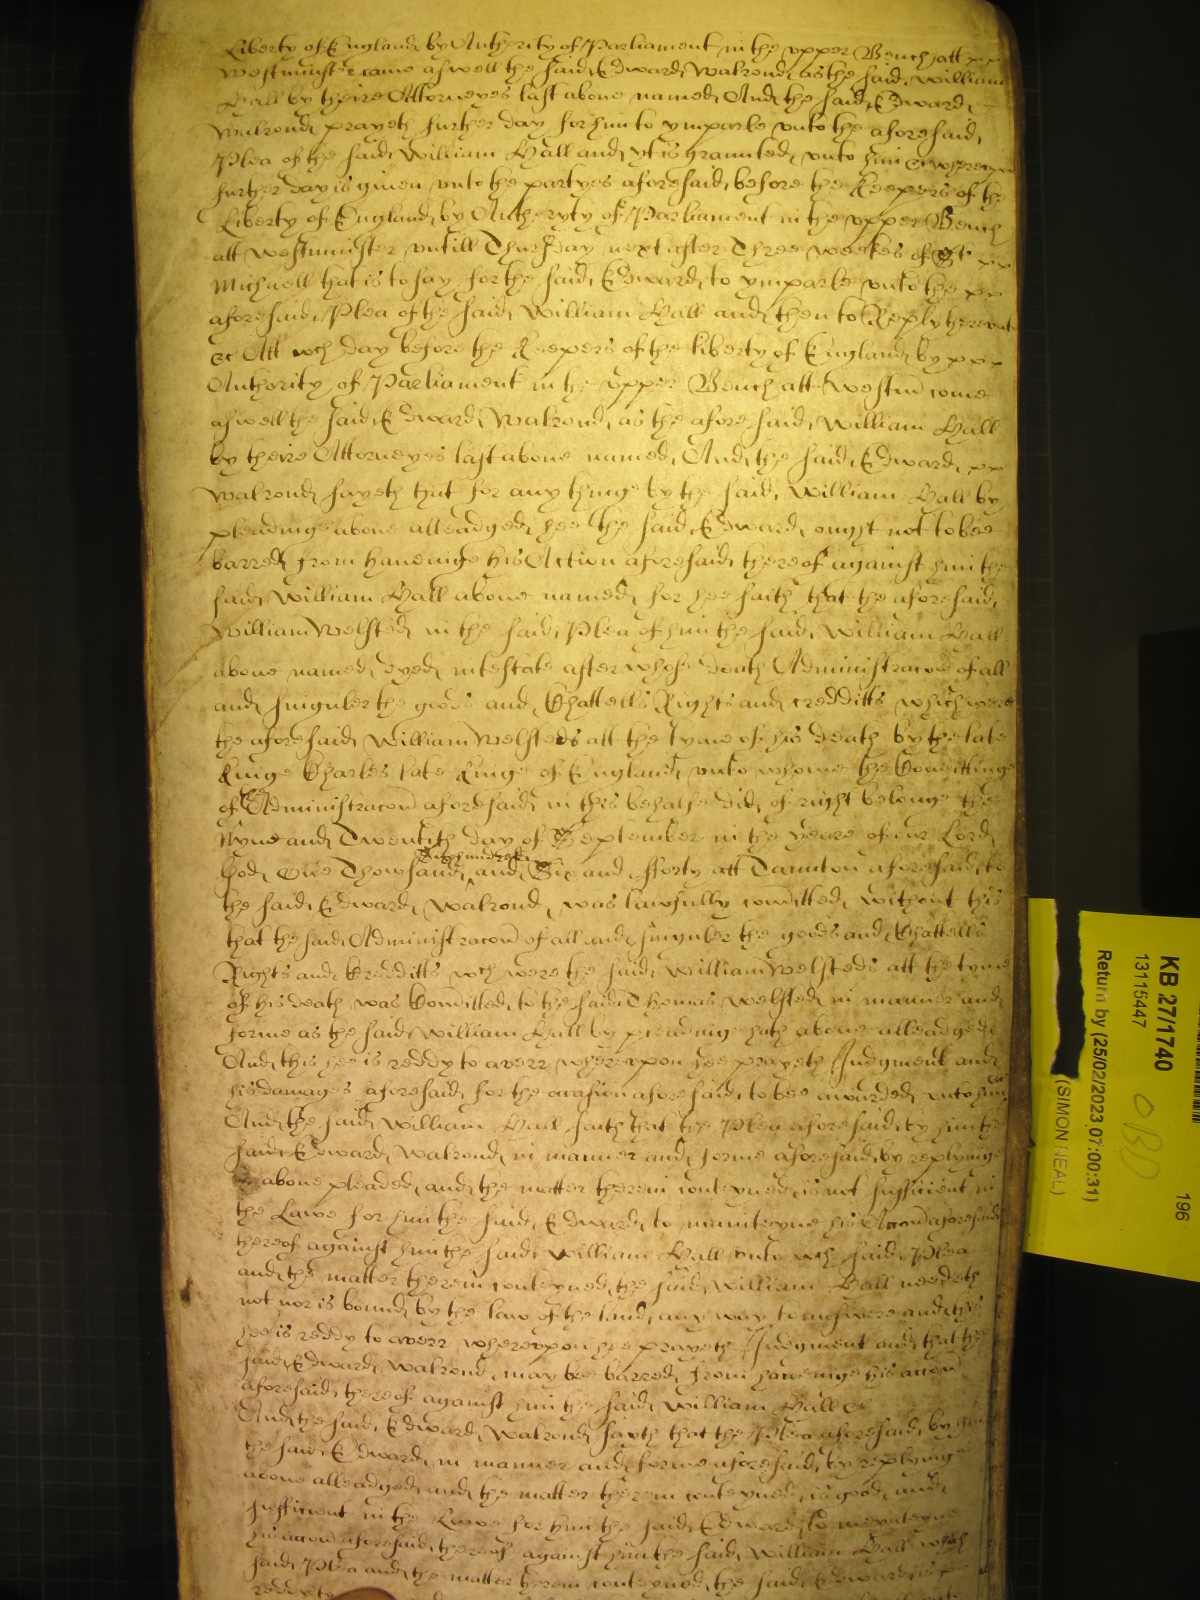 Liberty of England by Authority of Parliament in the vpper Bench att xxx
Westminster came aswell the said Edward Walrond as the said William
Hall by theire Attorneyes last aboue named And the said Edward
Walrond prayeth further day for him to ymparle vnto the aforesaid
Plea of the said William Hall and yt is graunted vnto him &c wherevpon
further day is giuen vnto the partyes aforesaid before the Keepers of the
Liberty of England by Authoryty of Parliament in the vpper Bench
att Westminster vntill Thursday next after Three weekes of St xx
Michaell that is to say for the said Edward to ymparle vnto the xx
aforesaid Plea of the said William Hall and then to Reply therevnto
&c Att wch day before the Keepers of the liberty of England by xxx
Authority of Parliament in the vpper Bench att Westmr come
aswell the said Edward Walrond as the afore said William Hall
by theire Attorneyes last aboue named And the said Edward xx
Walrond sayeth that for any thinge by the said William Hall by
pleadinge aboue alleadged hee the said Edward ought not to bee
barred from haueinge his Action aforesaid thereof against him the
said William Hall aboue named for hee saith that the aforesaid
William Welsted in the said Plea of him the said William Hall
aboue named dyed intestate after whose death Administracon of all
and singuler the goods and Chattells Rights and credditts which were
the aforesaid William Welsteds att the tyme of his death by the late
Kinge Charles late Kinge of England vnto whome the Comittinge
of Administracon aforesaid in this behalfe did of right belonge the
Nyne and Twentith day of September in the yeare of our Lord
God One Thowsand Six hundred and Six and fforty att Taunton aforesaid to
the said Edward Walrond was lawfully comitted without this
that the said Administracon of all and singuler the goods and Chattells
Rights and Credditts wch were the said William Welsteds att the tyme
of his death was Comitted to the said Thomas Welsted in manner and
forme as the said William Hall by pleadinge hath aboue alleadged
And this hee is reddy to averr wherevpon hee prayeth Judgment and
his damages aforesaid for the occasion aforesaid to bee awarded vnto him &c
And the said William Hall saith that the Plea aforesaid by him the
said Edward Walrond in manner and forme aforesaid by replyinge
aboue pleaded and the matter therein conteyned is not sufficient in
the Lawe for him the said Edward to mainteyne his Accon aforesaid
thereof against him the said William Hall vnto wch said Plea
and the matter therein conteyned the said William Hall needeth
not nor is bound by the law of the land any way to answere and this
hee is reddy to averr wherevpon hee prayeth Judgment and that the
said Edward Walrond may bee barred from haueinge his accon
aforesaid thereof against him the said William Hall &c
And the said Edward Walrond sayth that the Plea aforesaid by him
the said Edward in manner and forme aforesaid by replying
aboue alleadged and the matter therein conteyned is good and
sufficient in the Lawe for him the said Edward to meynteyne
his accon aforesaid thereof against him the said William Hall wch
said Plea and the matter therein conteyned the said Edward is
reddy to
KB 27/1740
13115447
196
Return by (25/02/2023 07:00:31)
(SIMON NEAL)
OBD